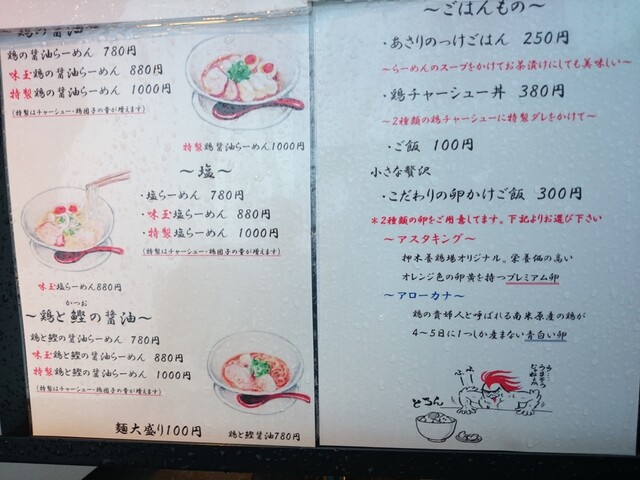 鶏の醤油～
鶏の醤油らーめん 780円
味玉鶏の醤油らーめん 880円
特製鶏の醤油らーめん 1000円
(特製はチャーシュー・鶏団子の量が増えます)
特製鶏醤油らーめん1000円
～塩～
・塩らーめん 780円
・味玉塩らーめん 880円
・特製塩らーめん 1000円
(特製はチャーシュー・鶏団子の量が増えます)
味玉塩らーめん880円
かつお
～鶏と鰹の醤油～
鶏と鰹の醤油らーめん 780円
味玉鶏と鰹の醤油らーめん 880円
特製鶏と鰹の醤油らーめん 1000円
(特製はチャーシュー・鶏団子の量が増えます)
麺大盛り100円
鶏と鰹醤油780円
～ごはんもの～
・あさりのっけごはん 250円
～らーめんのスープをかけてお茶漬けにしても美味しい～
・鶏チャーシュー丼 380円
～2種類の鶏チャーシューに特製ダレをかけて～
・ご飯 100円
小さな贅沢
・こだわりの卵かけご飯 300円
*2種類の卵をご用意してます。下記よりお選び下さい
～アスタキング～
押木養鶏場オリジナル。栄養価の高い
オレンジ色の卵黄を持つプレミアム卵
～アローカナ～
鶏の貴婦人と呼ばれる南米原産の鶏が
4～5日に1つしか産まない青白い卵
とろん